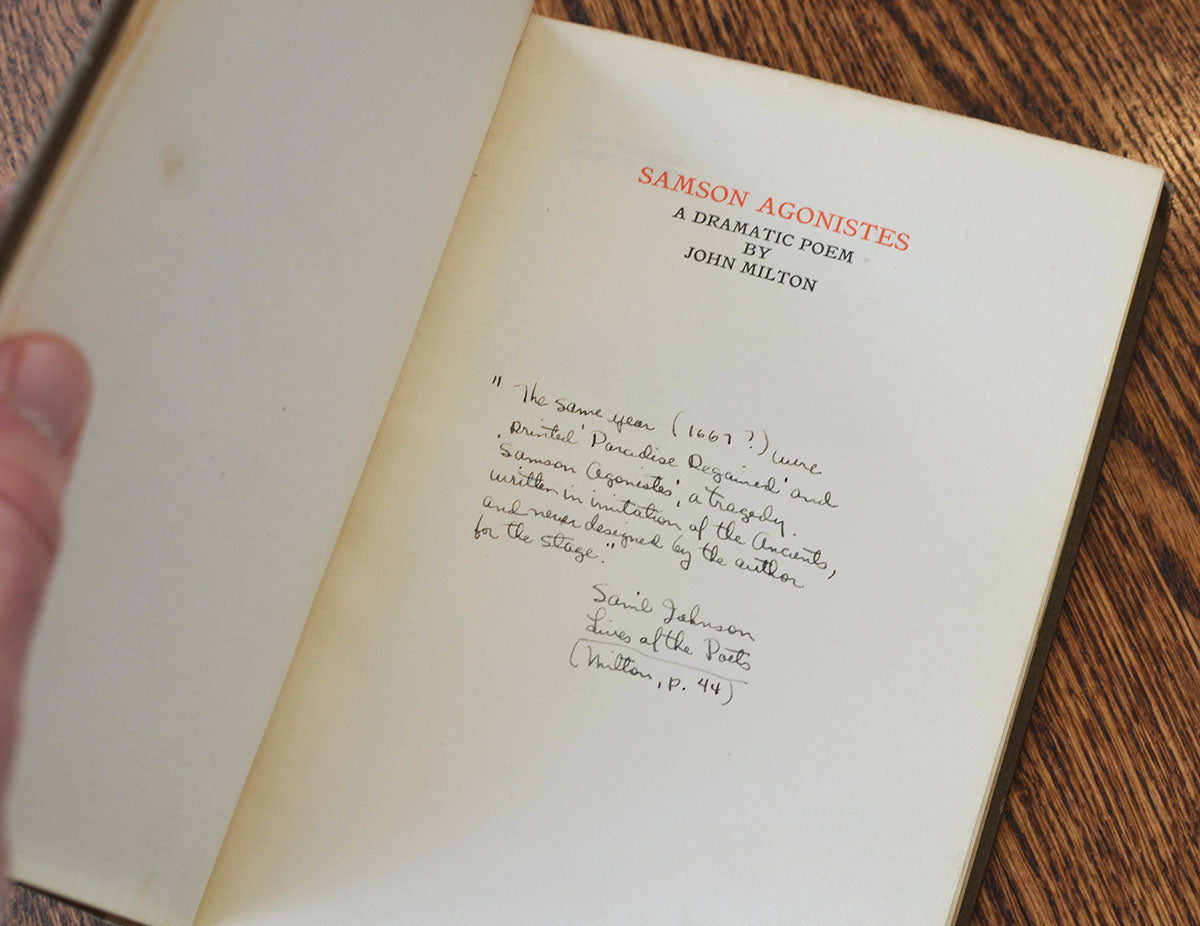 SAMSON AGONISTES
A DRAMATIC POEM
BY
JOHN MILTON
" The same year (1667?) were
printed 'Paradise Regained' and
'Samson Agonistes', a tragedy
written in imitation of the Ancients,
and never designed by the author
for the stage."
Sam'l Johnson
Lives of the Poets
(Milton, p. 44)